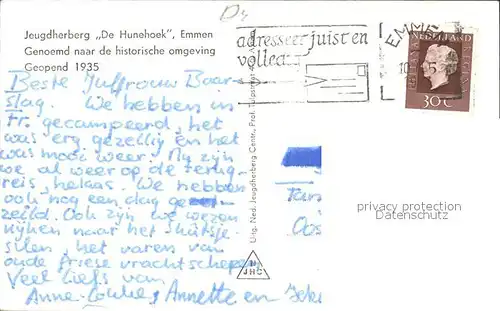 Dr
Jeugdherberg „De Hunehoek", Emmen
Genoemd naar de historische omgeving
Geopend 1935
adresseer juist en
volledig
EMMEN
10
NEDERLAND
30 c
Beste Juffrouw Baar-
slag. We hebben in
Fr. gecampeerd, het
was erg gezellig en het
was mooi weer. Nu zijn
we al weer op de terug-
reis, helaas. We hebben
ook nog een dag ge-
zeild. Ook zijn we wezen
kijken naar het Skûtsje-
silen, het varen van
oude Friese vrachtschepen
Veel liefs van
Annette en
Uitg. Ned. Jeugdherberg Centr., Prof.
N
JHC
privacy protection
Datenschutz